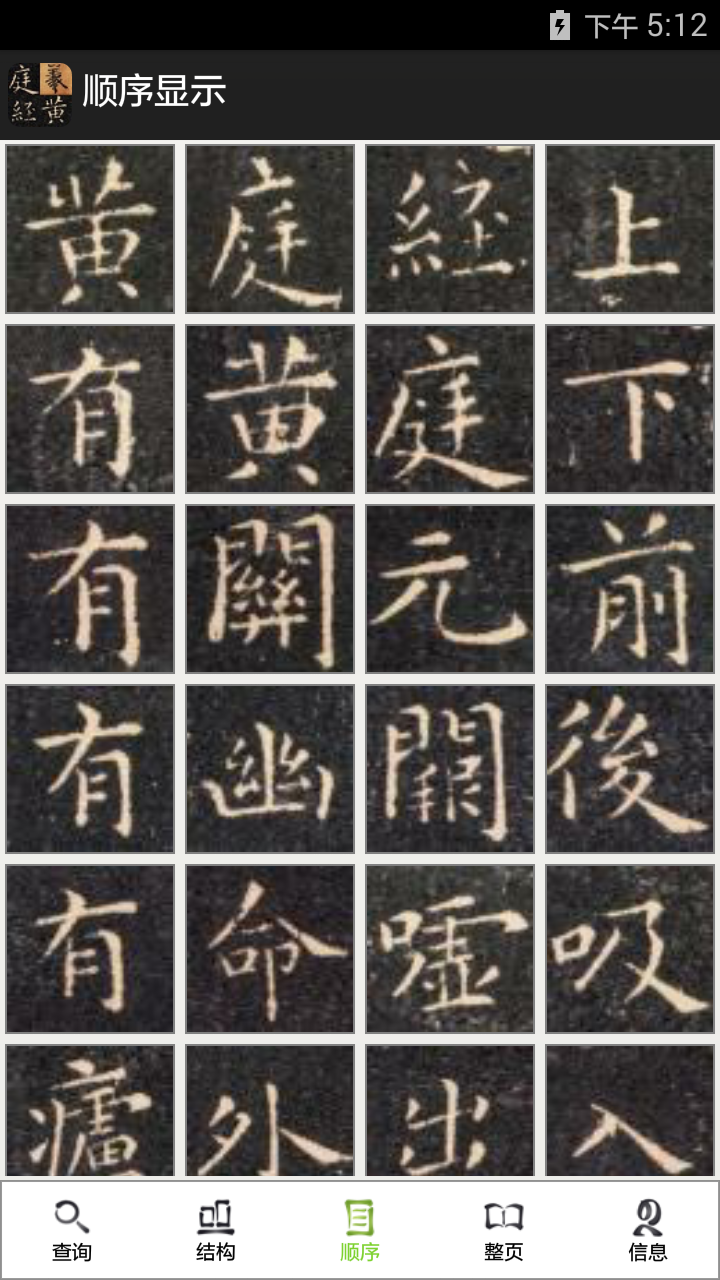 下午 5:12
庭 羲
經 黄
顺序显示
黄 庭 經 上
有 黄 庭 下
有 關 元 前
有 幽 闕 後
有 命 嘘 吸
廬 外 出 入
查询 结构 顺序 整页 信息